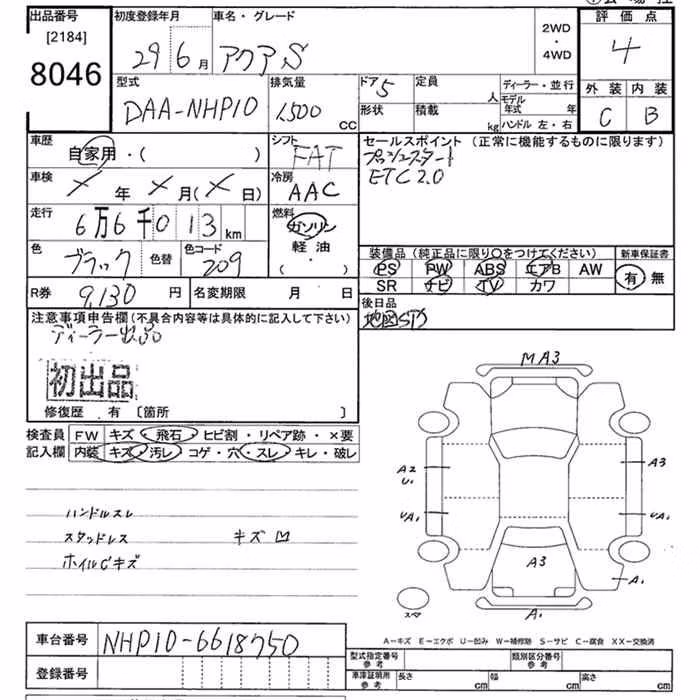 出品番号
[2184]
8046
初度登録年月
29 6月
車名・グレード
アクア S
2WD
・
4WD
評価点
4
外装 内装
C B
型式
DAA-NHP10
排気量
1500
cc
ドア 5
形状
定員
人
積載
kg
ディーラー・並行
モデル
年式 年
ハンドル 左・右
車歴
自家用・( )
シフト
FAT
車検
× 年 × 月(× 日)
冷房
AAC
走行
6万6千013 km
燃料
ガソリン
軽油
( ・ )
色
ブラック
色替
色コード
209
R券 9,130 円
名変期限 月 日
セールスポイント (正常に機能するものに限ります)
プッシュスタート
ETC2.0
装備品(純正品に限り○をつけてください)
PS PW ABS エアB AW
SR ナビ TV カワ
新車保証書
有 無
後日品
地図SD
注意事項申告欄(不具合内容等は具体的に記入して下さい)
ディーラー出品
初出品
修復歴 有 〔箇所 〕
検査員
記入欄
FW キズ・飛石・ヒビ割・リペア跡・×要
内装 キズ・汚レ・コゲ・穴・スレ・キレ・破レ
ハンドルスレ
スタッドレス キズ凹
ホイルCキズ
MA3
A2
U1
A3
UA1
UA1
A3
A1
A1
A-キズ E-エクボ U-凹み W-補修跡 S-サビ C-腐食 XX-交換済
車台番号 NHP10-6618750
登録番号
型式指定番号
参考
類別区分番号
参考
車庫証明用
参考
長さ cm
幅 cm
高さ cm